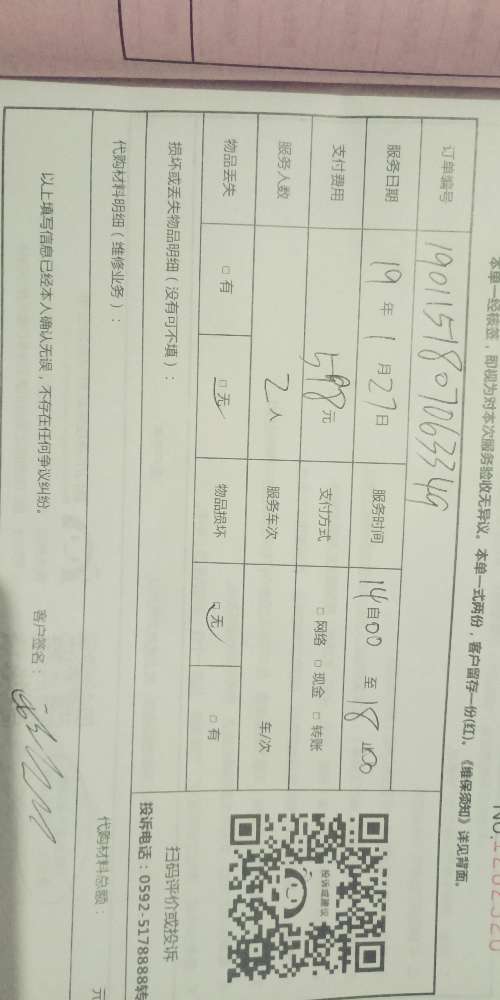 本单一经核签，即视为对本次服务验收无异议。本单一式两份，客户留存一份(红)。《维保须知》详见背面。
订单编号 190115180706334g
服务日期 19 年 1 月 27 日 服务时间 14 自 00 至 18 止 00
支付费用 598 元 支付方式 □ 网络 □ 现金 □ 转账
服务人数 2 人 服务车次 车/次
物品丢失 □ 有 □ 无 物品损坏 □ 无 □ 有
损坏或丢失物品明细（没有可不填）：
代购材料明细（维修业务）：
代购材料总额： 元
以上填写信息已经本人确认无误，不存在任何争议纠纷。 客户签名：
投诉或建议
扫码评价或投诉
投诉电话：0592-5178888转